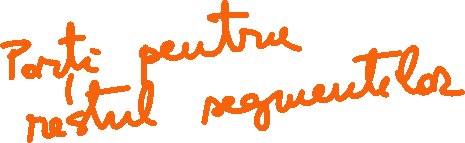 Porți pentru
restul segmentelor